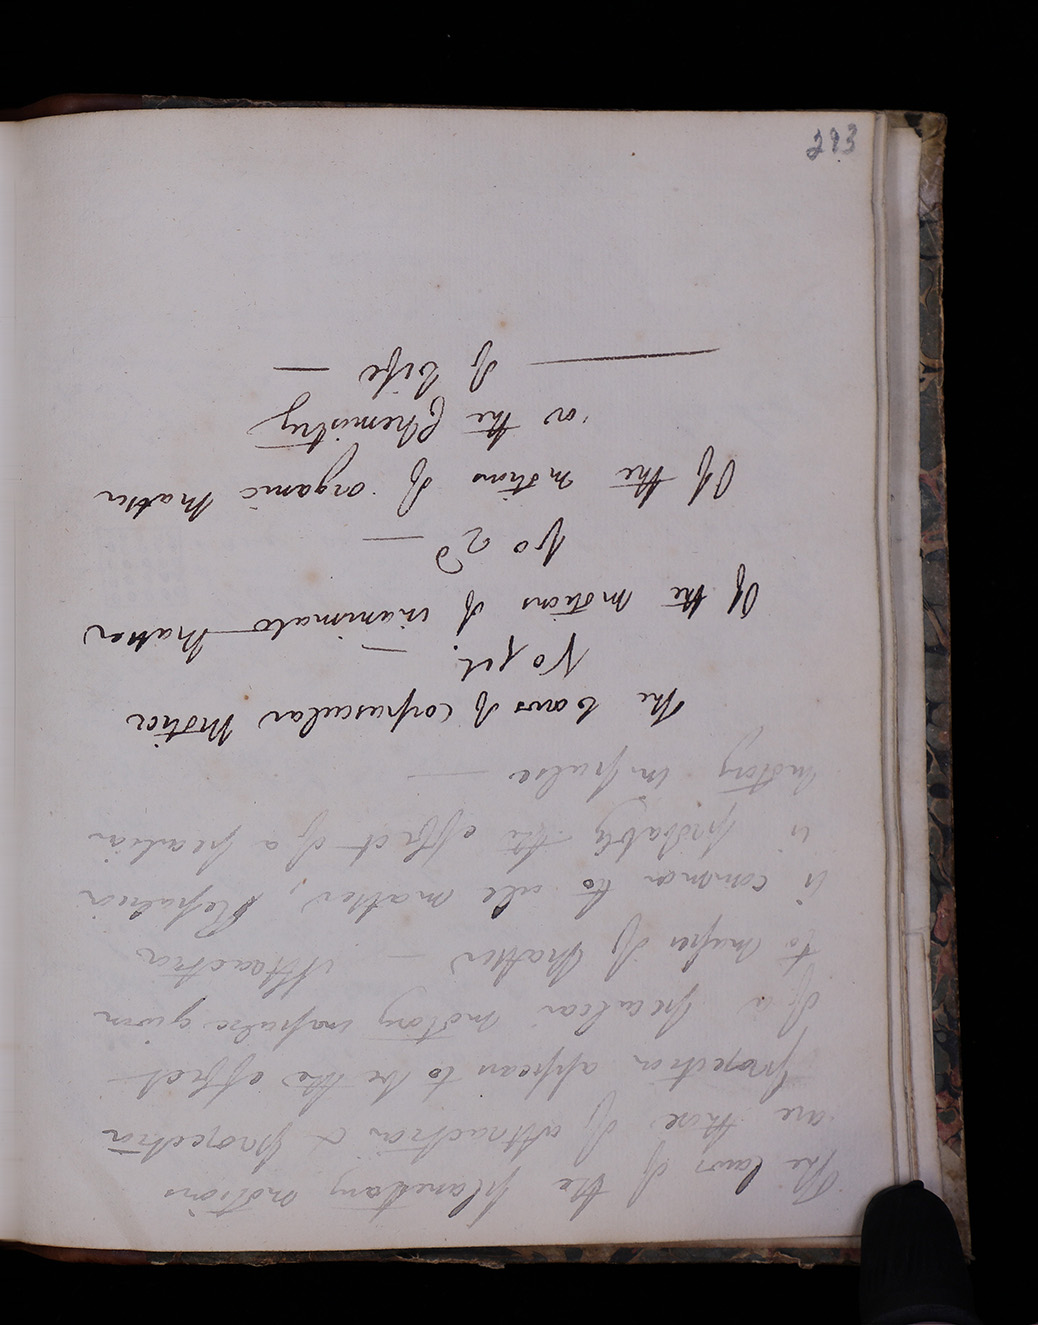 293
The laws of the planetary motions
are those of attraction & projection
projection appears to be the effect
of a peculiar motory impulse given
to masses of matter — Attraction
is common to all matter, Repulsion
is probably the effect of a peculiar
motory impulse —
The Laws of corpuscular Motion
No 1st. —
Of the motions of inanimate matter
No 2d —
Of the motions of organic matter
or the Chemistry
of Life —